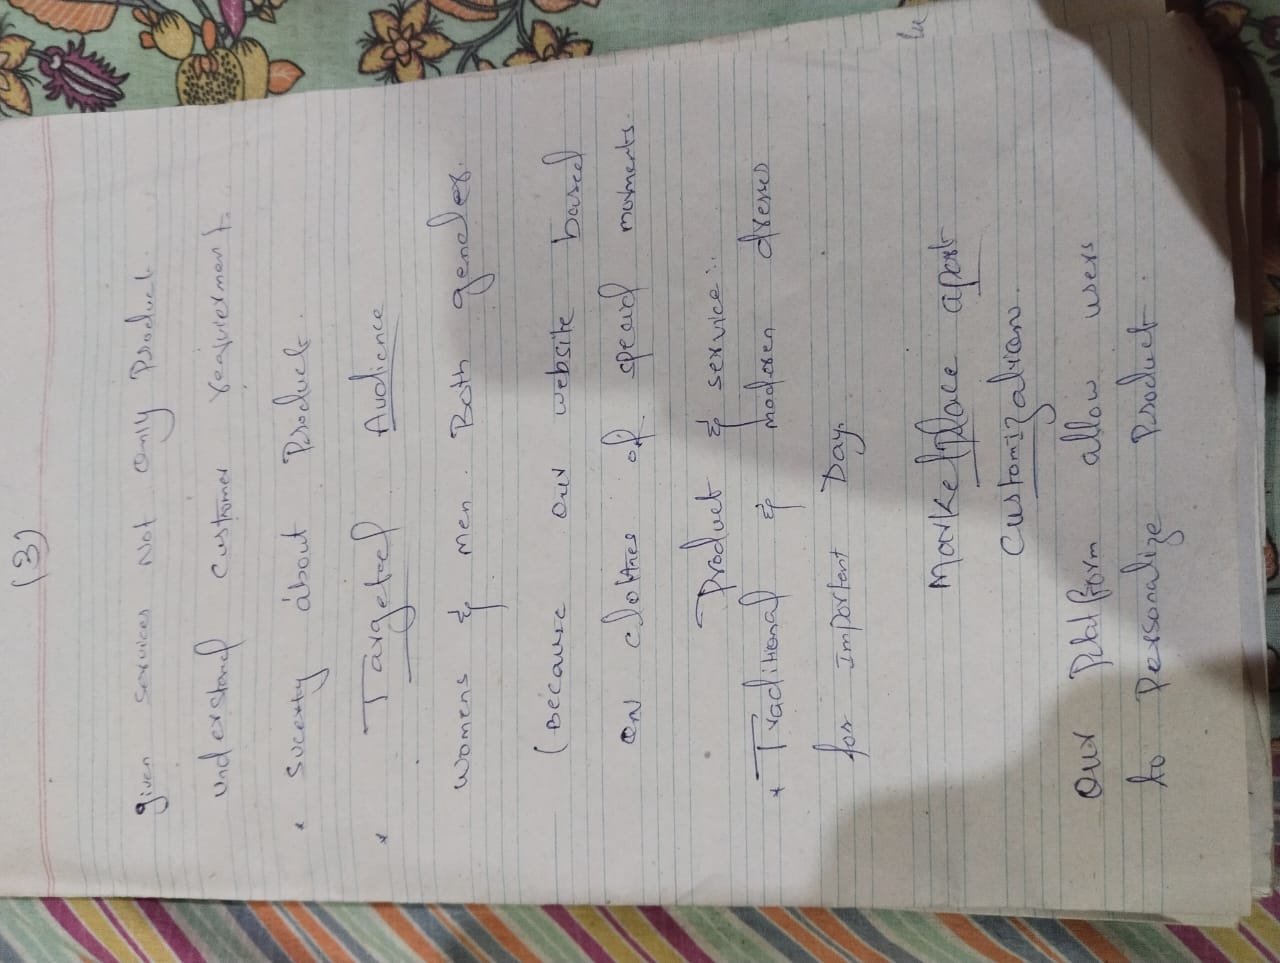 (3)
given services Not only Product.
understand customer requierment.
* sucerty about Product.
* Targeted Audience
Womens & men Both gender.
(Because our website based
on clothes of special moments.
Product & service:.
* Traditional & moderen dresses
for important Day.
Marketplace apart
Customization.
Our Platform allow users
to Personalize Product.